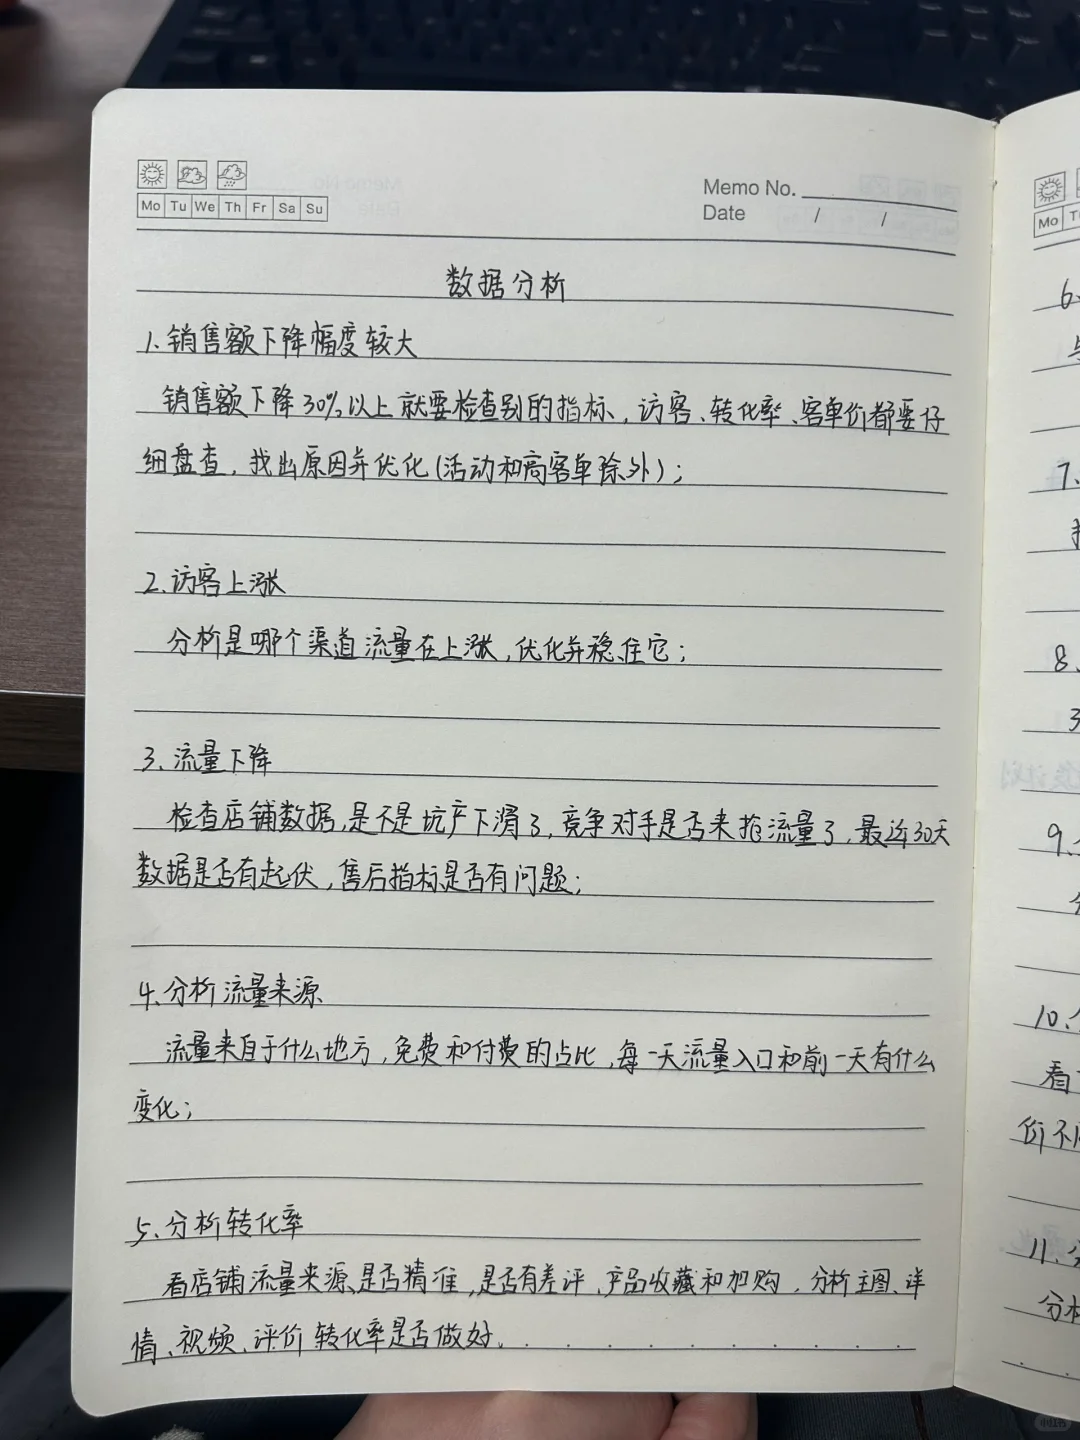 Mo Tu We Th Fr Sa Su
Memo No.
Date / /
数据分析
1.销售额下降幅度较大
销售额下降30%以上就要检查别的指标,访客、转化率、客单价都要仔
细盘查,找出原因并优化(活动和高客单除外);
2.访客上涨
分析是哪个渠道流量在上涨,优化并稳住它;
3.流量下降
检查店铺数据,是不是坑产下滑了,竞争对手是否来抢流量了,最近30天
数据是否有起伏,售后指标是否有问题;
4.分析流量来源
流量来自于什么地方,免费和付费的占比,每一天流量入口和前一天有什么
变化;
5.分析转化率
看店铺流量来源是否精准,是否有差评,产品收藏和加购,分析主图、详
情、视频、评价转化率是否做好。
Mo
6.
7.
8.
3
9.
10.
看
价不
11.
分析